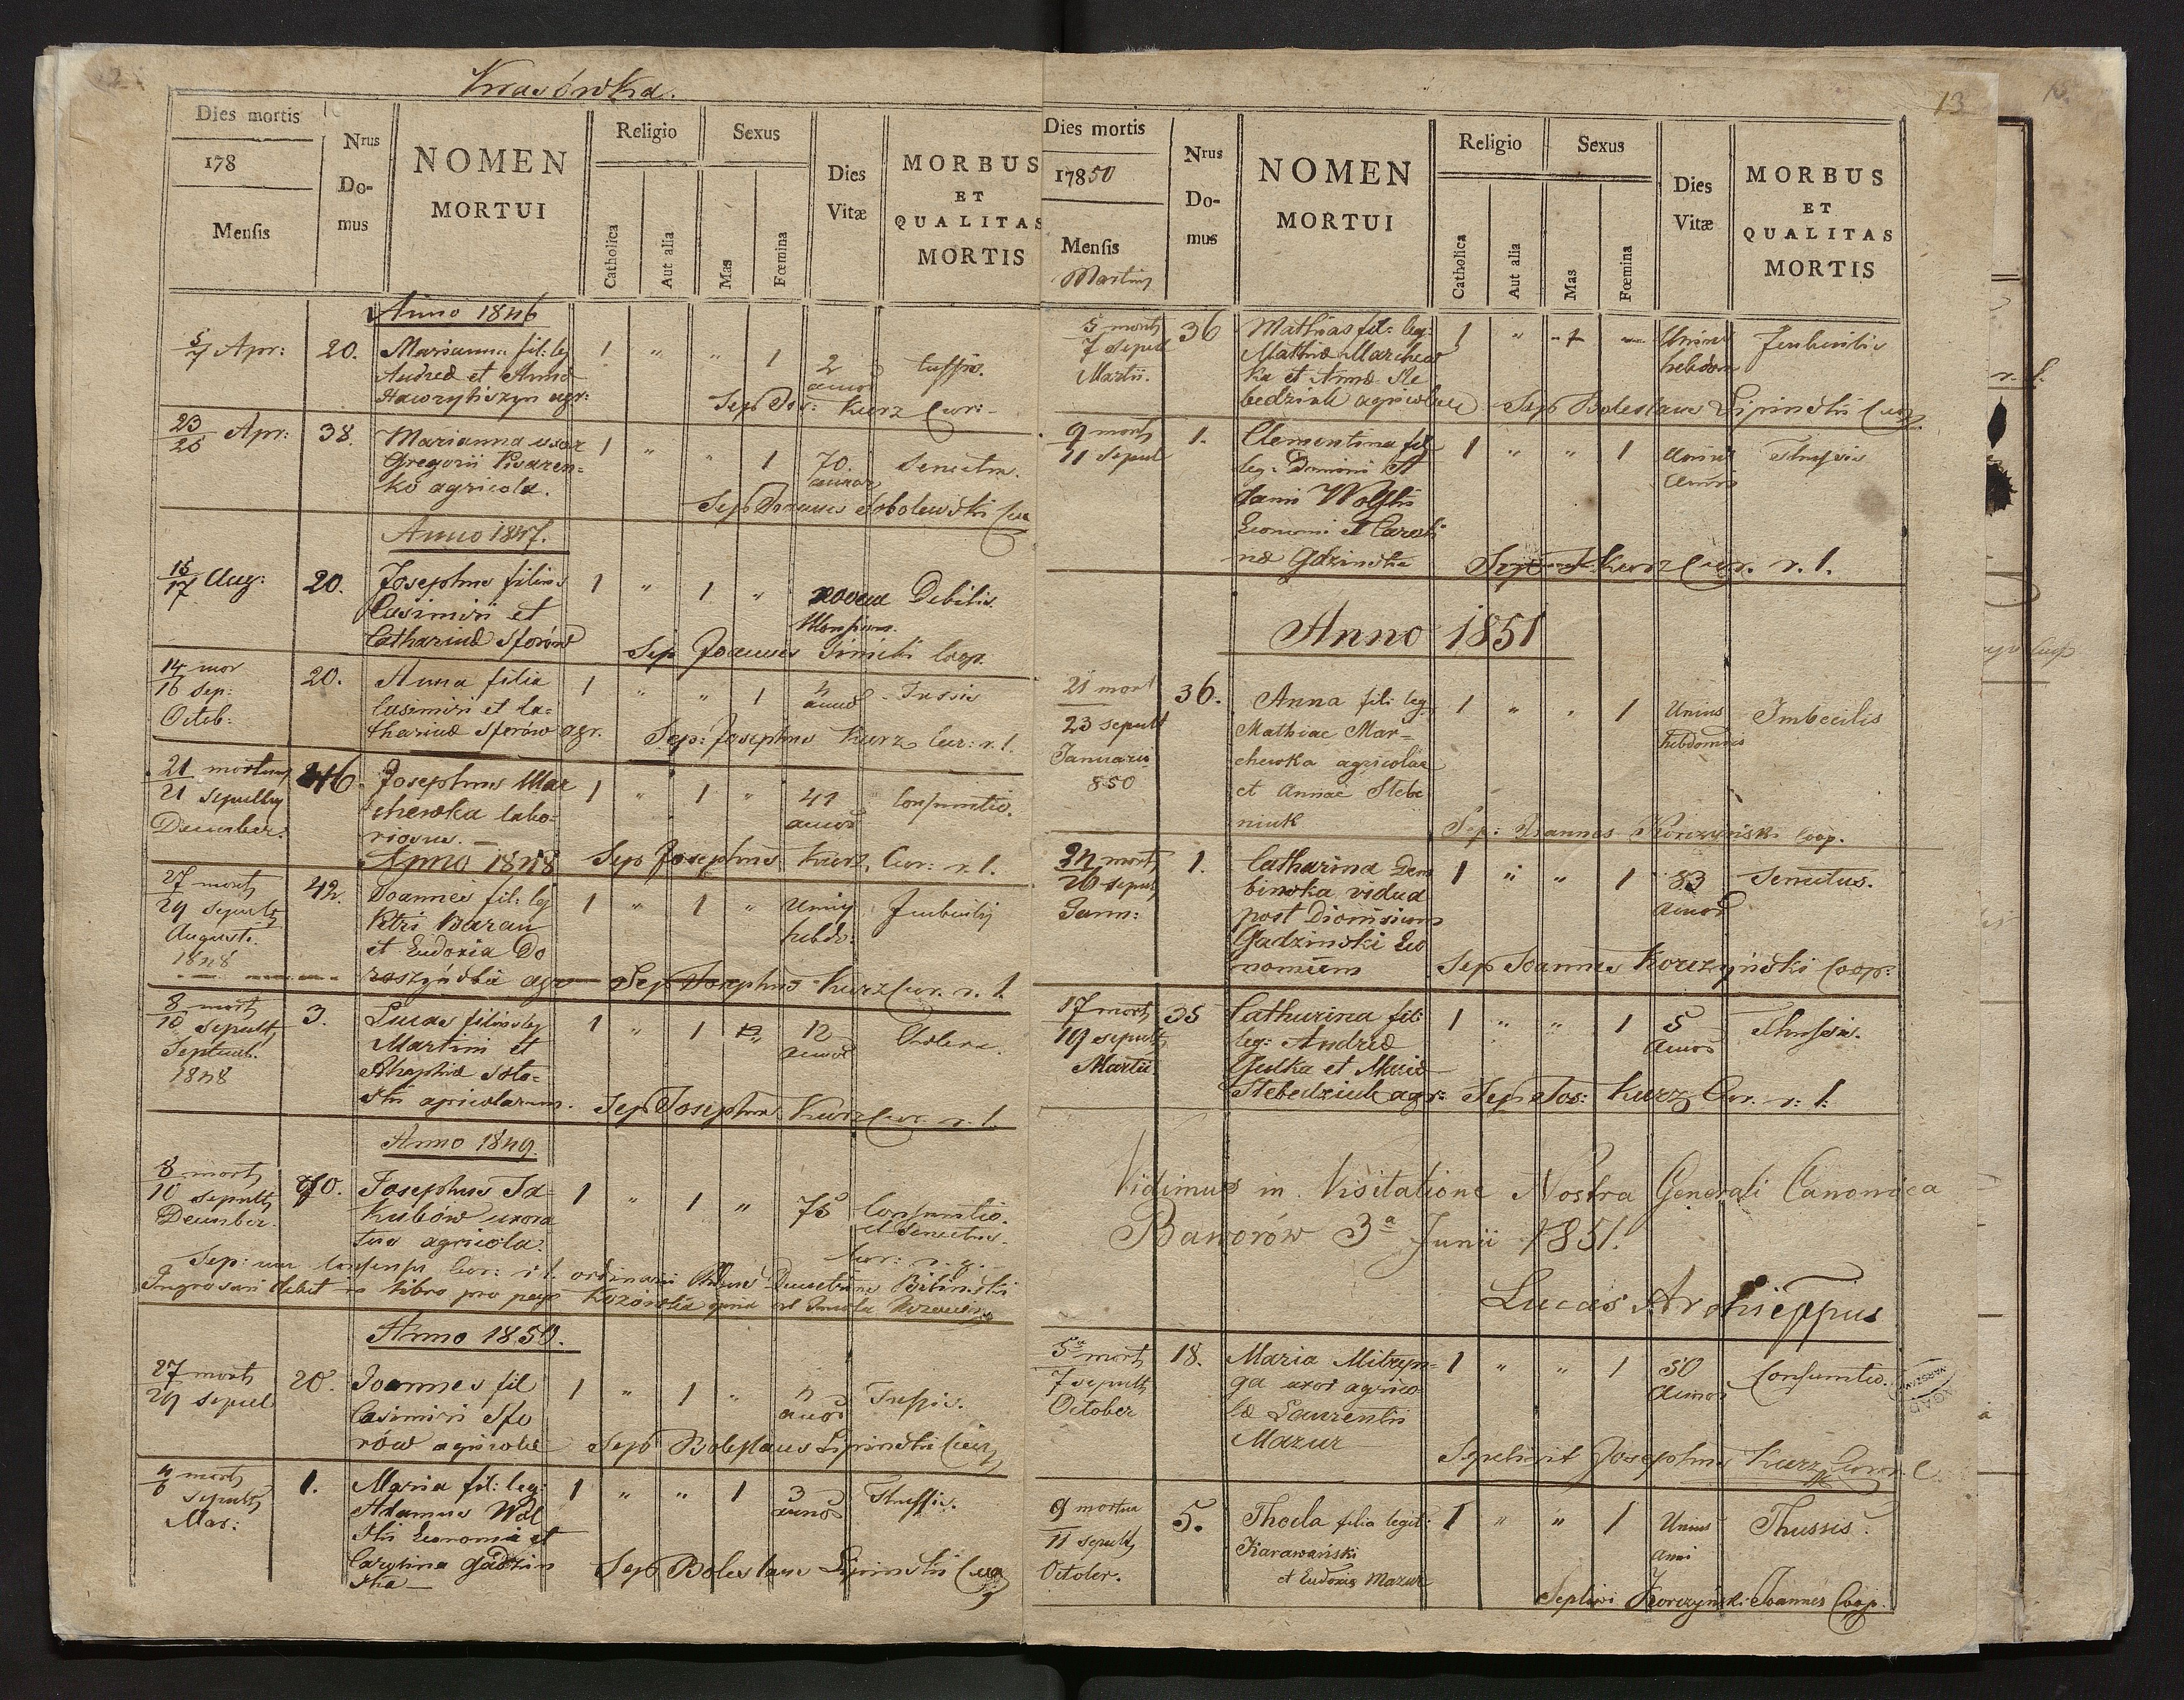 Krasówka.
Dies mortis
178
Mensis
Nrus
Do-
mus
NOMEN
MORTUI
Religio
Catholica
Aut alia
Sexus
Mas
Fœmina
Dies
Vitæ
MORBUS
ET
QUALITAS
MORTIS
Anno 1846
5/7 Apr: 20. Marianna fil: leg 1 " " 1 2 Tussis.
Andreæ et Annæ annor
agr: Sep Jos: Kurz Cur:
23/25 Apr: 38. Marianna uxor 1 " " 1 70. Senectus.
Gregorii Pisaren= annor
ko agricola.
Sep Joannes Sobolewski
Anno 1847.
15/17 Aug: 20. Josephus filius 1 " 1 " novem Debilis.
Casimiri et Mensium.
Catharinæ Sforów
Sep Joannes Coop.
14 mor 20. Anna filia 1 " " 1 4 Tussis
16 Sep: Casimiri et Ca= annor
Octob: tharinæ Sferów agr. Sep: Josephus Kurz Cur: r. l.
21 mortuus 46 Josephus Mar 1 " 1 " 41 Consumtio.
21 sepultus chewka labo= annor
December. riosus.
Anno 1848 Sep Josephus Kurz Cur: r. l.
27 mort 42. Joannes fil: leg 1 " 1 " Unius Imbecilis
29 sepult Petri Baran hebdo:
Augusti. et Eudoxia Do
1848 roszyńska agr Sep Josephus Kurz Cur. r. l.
8 mort 3. Lucas filius leg 1 " 1 12 Cholera.
10 sepult Martini et annor
Septemb.
1848 agricolarum. Sep Josephus Kurz Cur. r. l.
Anno 1849.
8 mort 70. Josephus Ja= 1 " 1 " 75 Consumtio.
10 sepult kubów uxora et Senectus.
December. tus agricola.
Sep: cum consensu Cur: r. l. ordinarii Biliński Cur: r. g.
Ingrosari debet in libro pro pago
Anno 1850.
27 mort 20. Joannes fil 1 " 1 " 4 Tussis.
29 sepul Casimiri Sfe annor
rów agricolæ Sep Boleslaus Lipiński
4 mort 1. Maria fil: leg: 1 " " 1 3 Thussis.
6 sepult Adamus Wol annor
Mar: ski Economia et
Carolina Gadzin
ska Sep Boleslaus Lipiński
13
Dies mortis
17850
Mensis
Martius
Nrus
Do-
mus
NOMEN
MORTUI
Religio
Catholica
Aut alia
Sexus
Mas
Fœmina
Dies
Vitæ
MORBUS
ET
QUALITAS
MORTIS
5 mort 36 Mathias fil: leg: 1 " 1 Unius Imbecilis
7 sepul Mathiæ Marchew hebdom
Martii. ka et Annæ Ste
bedziuk agricolæ Sep Boleslaus Lipiński
9 mort 1. Clementina fil 1 " " 1 Thussis
11 sepul leg: Domini A
dami Wolski
Economi et Caroli
næ Gdzinska Sep J. Kurz Cur. r. l.
Anno 1851
21 mort 36. Anna fil: leg 1 " " 1 Unius Imbecilis
23 sepult Mathiae Mar= hebdomis
Januarii chewka agricolae
850 et Annae Stebe
niuk Sep: Joannes Korczyński Coop.
24 mort 1. Catharina Dem 1 " " 1 83 Senectus.
26 sepult binska vidua annor
Jann: post Dionisium
Gadzinski Eco
nomum Sep Joannes Korczyński Coop:
17 mort 35 Catharina fil: 1 " " 1 5 Thussis.
19 sepult leg: Andreæ annor
Martii Gulka et Mariæ
Stebedziuk agr: Sep Jos: Kurz Cur. r. l.
Vidimus in Visitatione Nostra Generali Canonica
Baworów 3a Junii 1851.
Lucas Archieppus
5a mort 18. Maria Mitryn= 1 " " 1 50 Consumtio.
7 sepult ga uxor agrico annor
October læ Laurentii
Mazur
Sepelivit Josephus Kurz Cur. r. l.
9 mortua 5. Thecla filia legit: 1 " " 1 Unius Thussis.
11 sepult Karawański anni
October. et Eudoxia Mazur
Korczyński Joannes Coop.